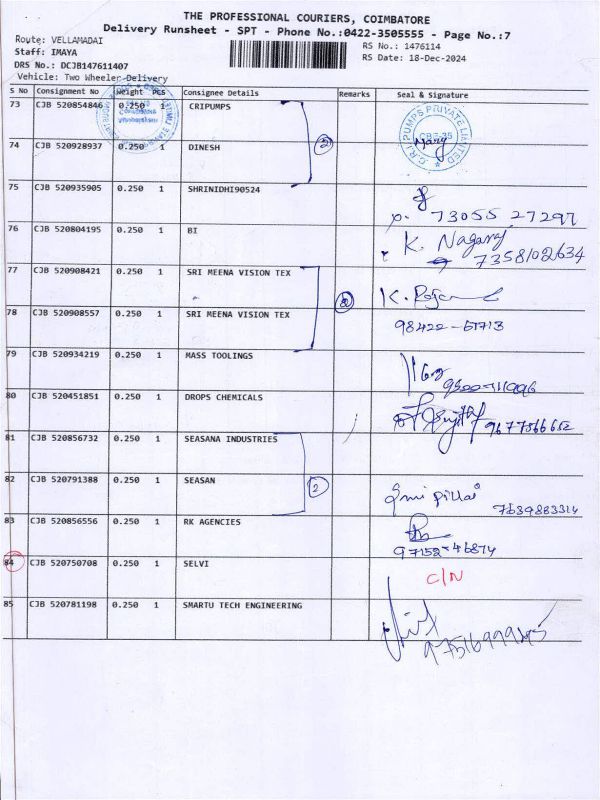 THE PROFESSIONAL COURIERS, COIMBATORE
Delivery Runsheet - SPT - Phone No.:0422-3505555 - Page No.:7
Route: VELLAMADAI
Staff: IMAYA
DRS No.: DCJB147611407
Vehicle: Two Wheeler-Delivery
RS No.: 1476114
RS Date: 18-Dec-2024
S No Consignment No Weight PCS Consignee Details Remarks Seal & Signature
73 CJB 520854846 0.250 1 CRIPUMPS
C.R.I PUMPS PRIVATE LIMITED
2
74 CJB 520928937 0.250 1 DINESH
75 CJB 520935905 0.250 1 SHRINIDHI90524
73055 27297
76 CJB 520804195 0.250 1 BI K. Nagaraj
7358102634
77 CJB 520908421 0.250 1 SRI MEENA VISION TEX
2
78 CJB 520908557 0.250 1 SRI MEENA VISION TEX
79 CJB 520934219 0.250 1 MASS TOOLINGS
80 CJB 520451851 0.250 1 DROPS CHEMICALS
81 CJB 520856732 0.250 1 SEASANA INDUSTRIES
82 CJB 520791388 0.250 1 SEASAN 2
7639883314
83 CJB 520856556 0.250 1 RK AGENCIES
97152-46874
84 CJB 520750708 0.250 1 SELVI C/N
85 CJB 520781198 0.250 1 SMARTU TECH ENGINEERING